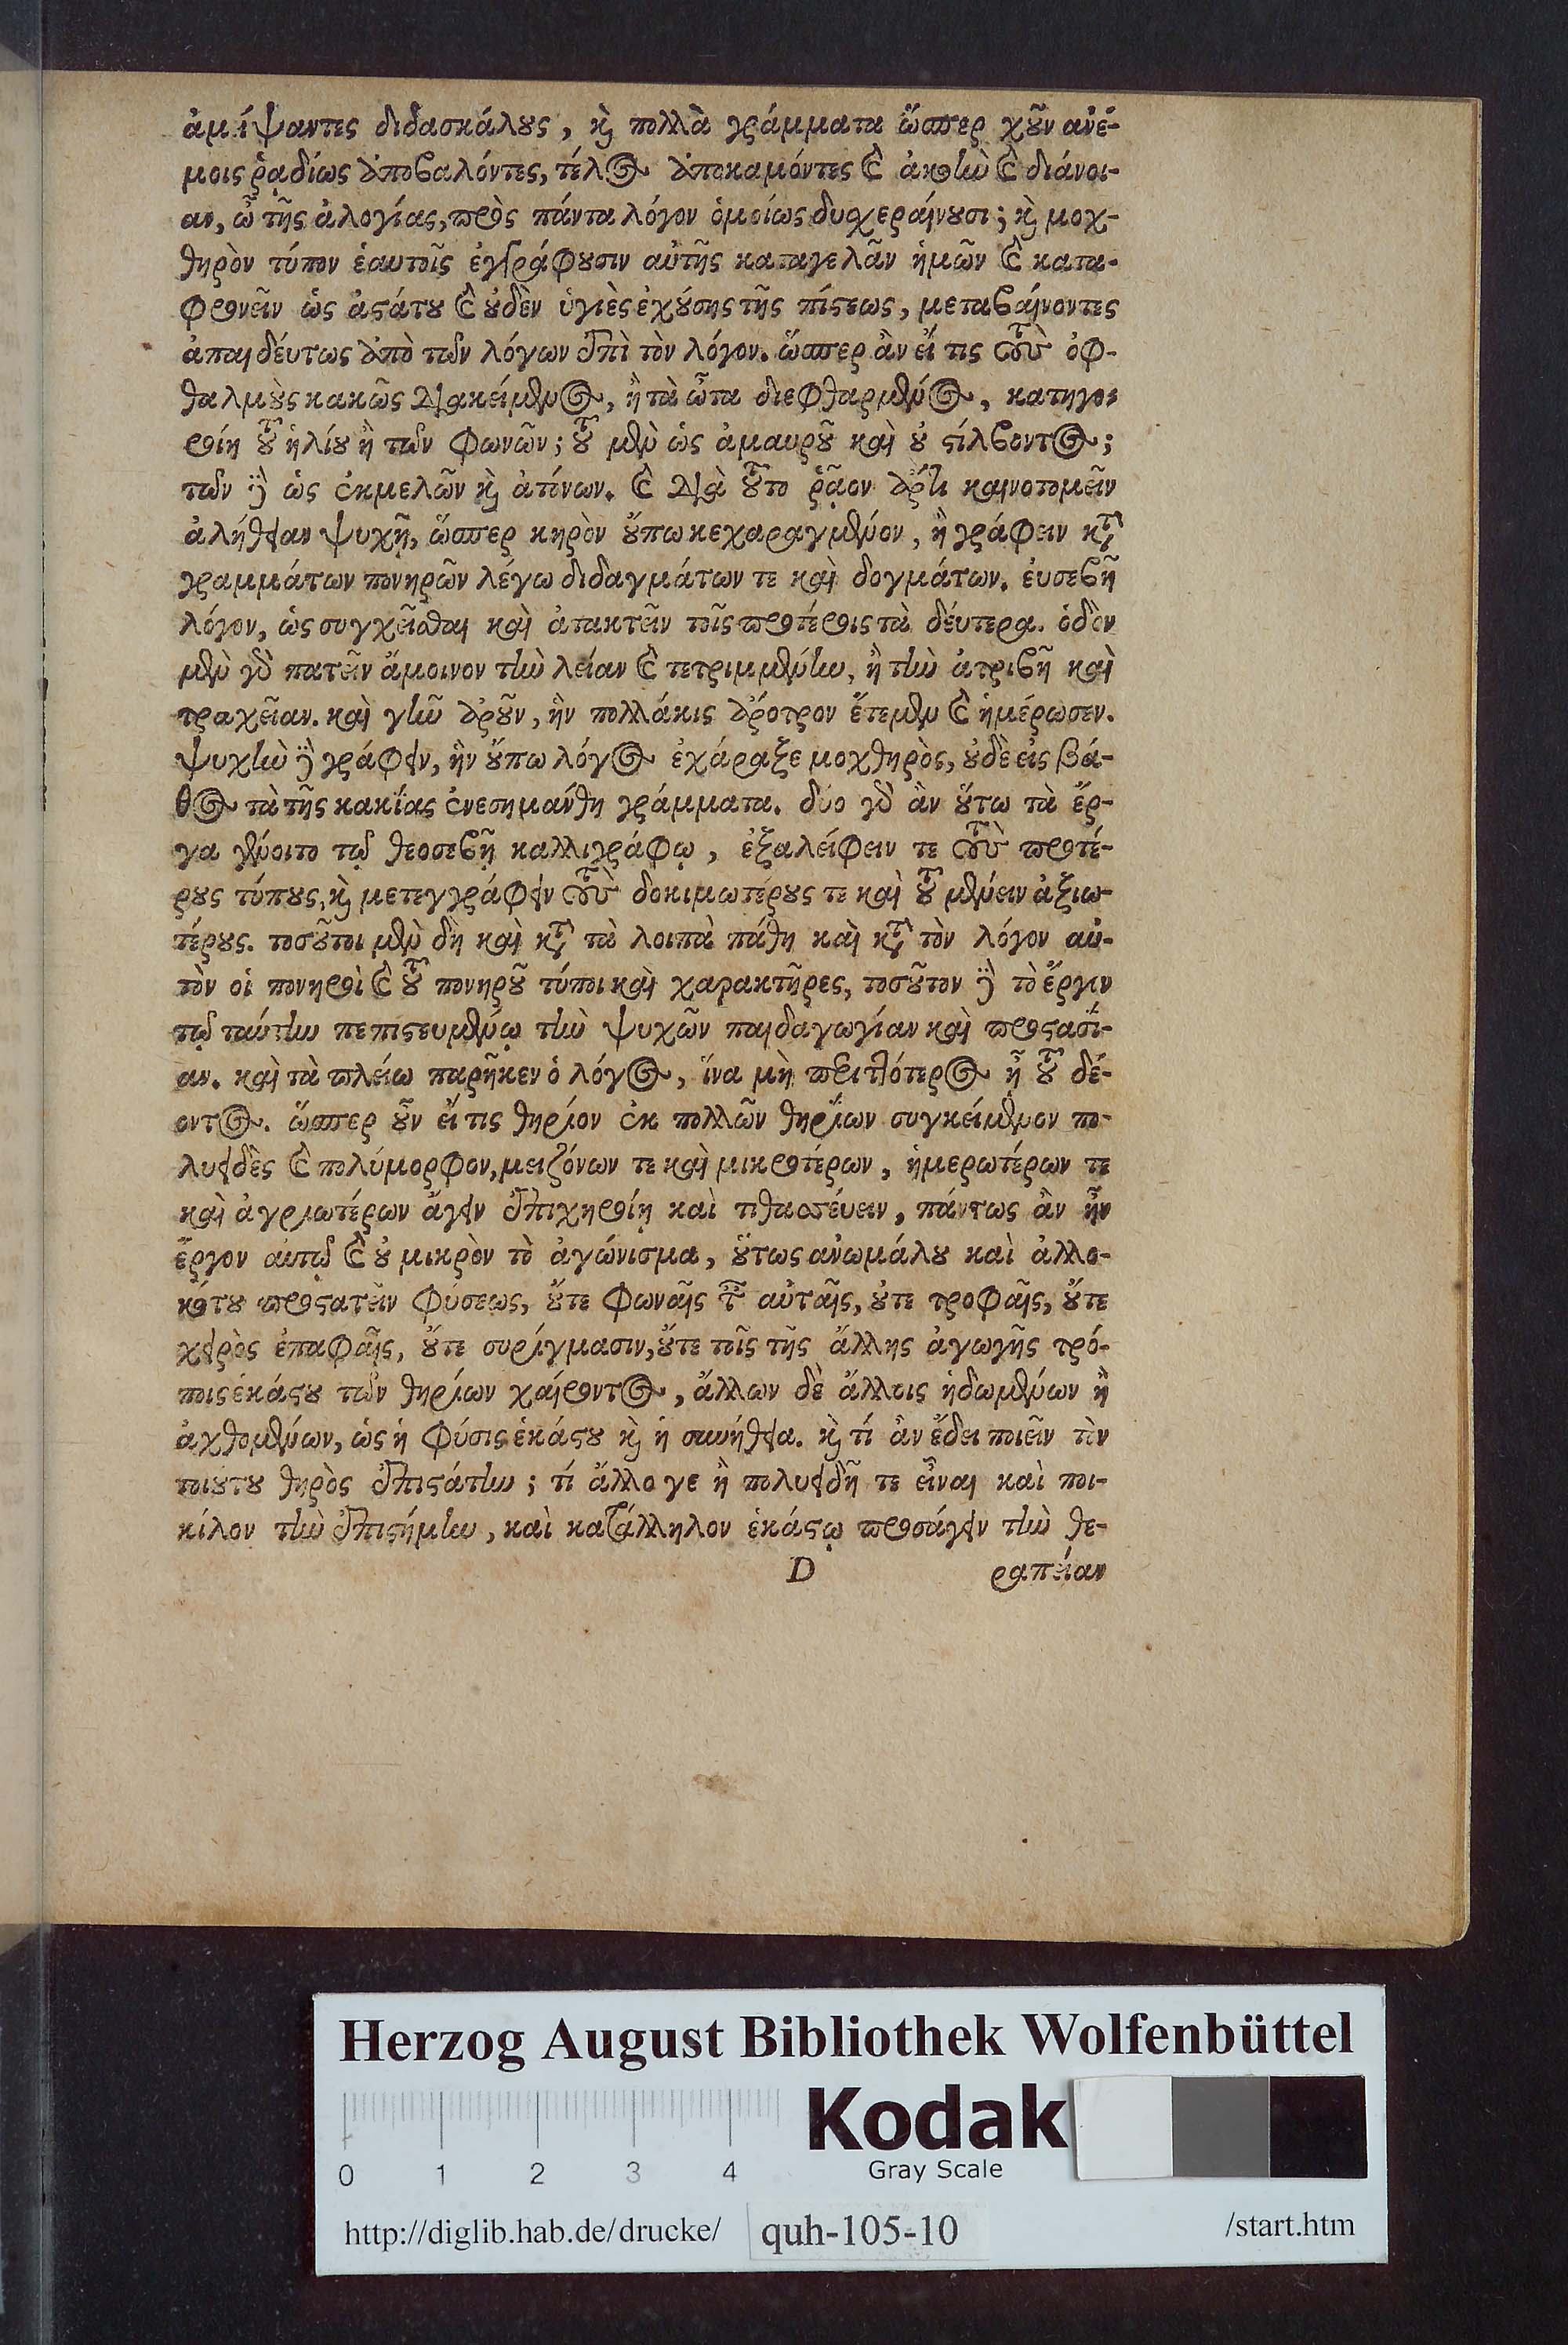 ἀμείψαντες διδασκάλους, καὶ πολλὰ γράμματα ὥσπερ χοῦν ἀνέ-
μοις ῥᾳδίως ἀποβαλόντες, τέλος ἀποκαμόντες καὶ ἀκοὴν καὶ διάνοι-
αν, ὢ τῆς ἀλογίας, πρὸς πάντα λόγον ὁμοίως δυχεραίνουσι; καὶ μοχ-
θηρὸν τύπον ἑαυτοῖς ἐγγράφουσιν αὐτῆς καταγελᾶν ἡμῶν καὶ κατα-
φρονεῖν ὡς ἀστάτου καὶ οὐδὲν ὑγιὲς ἐχούσης τῆς πίστεως, μεταβαίνοντες
ἀπαιδεύτως ἀπὸ τῶν λόγων ἐπὶ τὸν λόγον. ὥσπερ ἂν εἴ τις τοὺς ὀφ-
θαλμοὺς κακῶς διακείμενος, ἢ τὰ ὦτα διεφθαρμένος, κατηγο-
ροίη τοῦ ἡλίου ἢ τῶν φωνῶν; τοῦ μὲν ὡς ἀμαυροῦ καὶ οὐ στίλβοντος;
τῶν δὲ ὡς ἐκμελῶν καὶ ἀτόνων. καὶ διὰ τοῦτο ῥᾷον ἄρτι καινοτομεῖν
ἀλήθειαν ψυχῇ, ὥσπερ κηρὸν οὔπω κεχαραγμένον, ἢ γράφειν κατὰ
γραμμάτων πονηρῶν λέγω διδαγμάτων τε καὶ δογμάτων. εὐσεβῆ
λόγον, ὡς συγχεῖσθαι καὶ ἀτακτεῖν τοῖς προτέροις τὰ δεύτερα. ὁδὸν
μὲν γὰρ πατεῖν ἄμοινον τὴν λείαν καὶ τετριμμένην, ἢ τὴν ἀτριβῆ καὶ
τραχεῖαν. καὶ γῆν ἀροῦν, ἣν πολλάκις ἄροτρον ἔτεμεν καὶ ἡμέρωσεν.
ψυχὴν δὲ γράφειν, ἣν οὔπω λόγος ἐχάραξε μοχθηρὸς, οὐδὲ εἰς βά-
θος τὰ τῆς κακίας ἐνεσημάνθη γράμματα. δύο γὰρ ἂν οὕτω τὰ ἔρ-
γα γένοιτο τῷ θεοσεβῇ καλλιγράφῳ, ἐξαλείφειν τε τοὺς προτέ-
ρους τύπους, καὶ μετεγγράφειν τοὺς δοκιμωτέρους τε καὶ τοῦ μένειν ἀξιω-
τέρους. τοσοῦτοι μὲν δὴ καὶ κατὰ τὰ λοιπὰ πάθη καὶ κατὰ τὸν λόγον αὐ-
τὸν οἱ πονηροὶ καὶ τοῦ πονηροῦ τύποι καὶ χαρακτῆρες, τοσοῦτον δὲ τὸ ἔργον
τῷ ταύτην πεπιστευμένῳ τὴν ψυχῶν παιδαγωγίαν καὶ προστασί-
αν. καὶ τὰ πλείω παρῆκεν ὁ λόγος, ἵνα μὴ περιττότερος ᾖ τοῦ δέ-
οντος. ὥσπερ οὖν εἴ τις θηρίον ἐκ πολλῶν θηρίων συγκείμενον πο-
λυειδὲς καὶ πολύμορφον, μειζόνων τε καὶ μικροτέρων, ἡμερωτέρων τε
καὶ ἀγριωτέρων ἄγειν ἐπιχειροίη καὶ τιθασσεύειν, πάντως ἂν ἦν
ἔργον αὐτῷ καὶ οὐ μικρὸν τὸ ἀγώνισμα, οὕτως ἀνωμάλου καὶ ἀλλο-
κότου προστατεῖν φύσεως, οὔτε φωναῖς τῶν αὐταῖς, οὔτε τροφαῖς, οὔτε
χειρὸς ἐπαφαῖς, οὔτε συρίγμασιν, οὔτε τοῖς τῆς ἄλλης ἀγωγῆς τρό-
ποις ἑκάστου τῶν θηρίων χαίροντος, ἄλλων δὲ ἄλλοις ἡδομένων ἢ
ἀχθομένων, ὡς ἡ φύσις ἑκάστου καὶ ἡ συνήθεια. καὶ τί ἂν ἔδει ποιεῖν τὸν
τοιούτου θηρὸς ἐπιστάτην; τί ἄλλο γε ἢ πολυειδῆ τε εἶναι καὶ ποι-
κίλον τὴν ἐπιστήμην, καὶ κατάλληλον ἑκάστῳ προσάγειν τὴν θε-
D ραπείαν
Herzog August Bibliothek Wolfenbüttel
Kodak
Gray Scale
0 1 2 3 4
http://diglib.hab.de/drucke/ quh-105-10 /start.htm